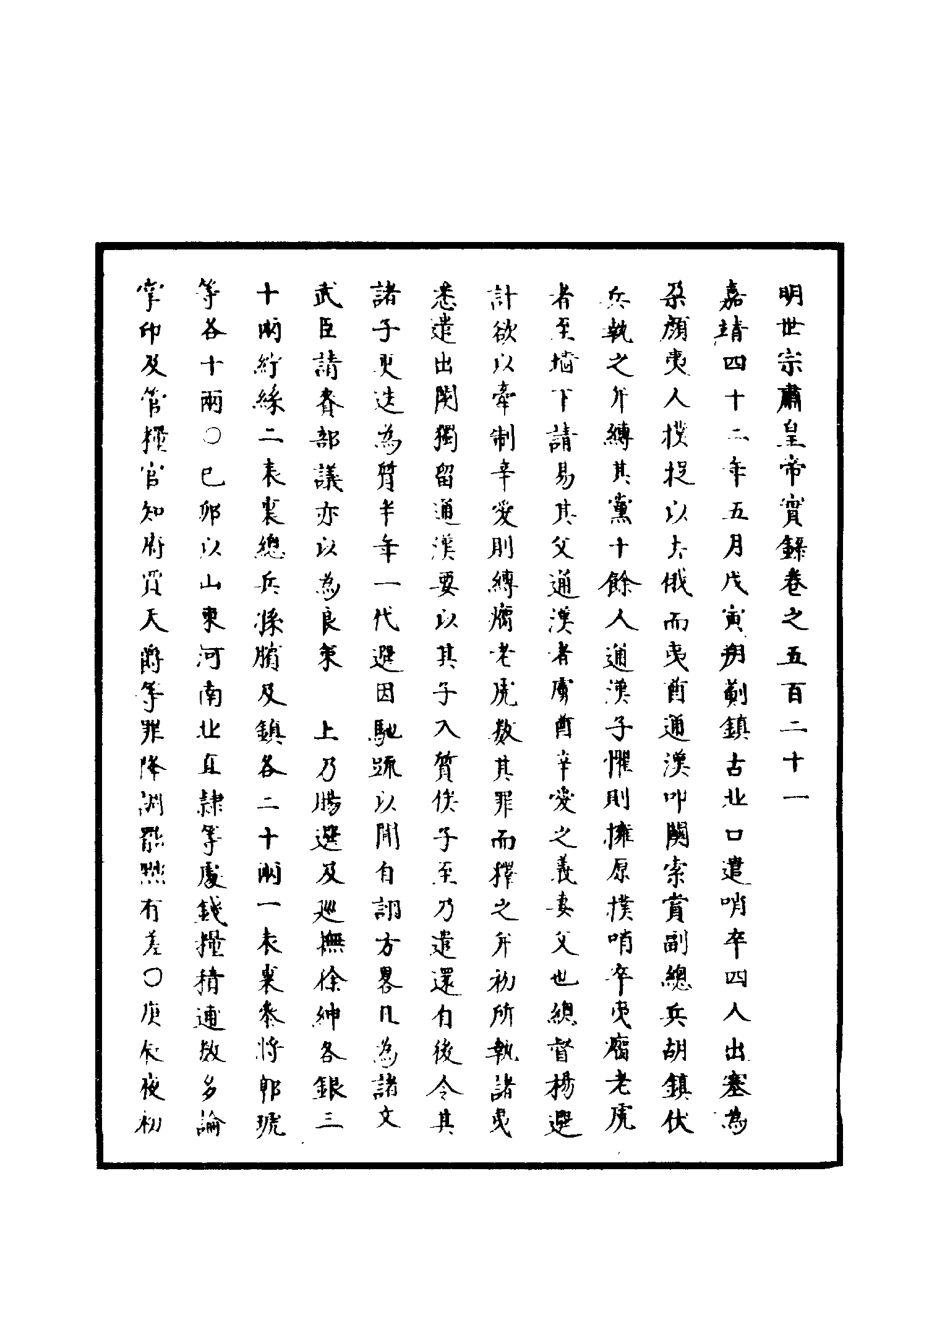 明世宗肅皇帝實錄卷之五百二十一
嘉靖四十二年五月戊寅朔薊鎮古北口遣哨卒四人出塞為
朶顏夷人撲捉以去俄而夷酋通漢叩關索賞副總兵胡鎮伏
兵執之并縛其黨十餘人通漢子懼則擁原撲哨卒夷㺐老虎
者至墻下請易其父通漢者虜酋辛愛之義妻父也總督楊選
計欲以牽制辛愛則縛㺐老虎數其罪而釋之并初所執諸夷
悉遣出関獨留通漢要以其子入質俟子至乃遣還自後令其
諸子更迭為質半年一代選因馳疏以聞自詡方畧凡為諸文
武臣請賚部議亦以為良策 上乃賜選及廵撫徐紳各銀三
十兩紵絲二表裏總兵孫臏及鎮各二十兩一表裏叅將郭琥
等各十兩○己卯以山東河南北直隸等處錢糧積逋數多論
掌印及管糧官知府賈天爵等罪降調罷黜有差○庚辰夜初